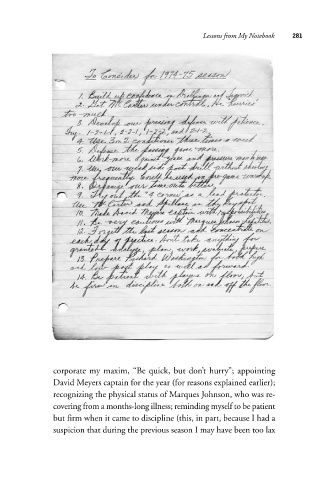 Lessons from My Notebook 281
To Consider for 1974-75 season
1. Build up confidence in Drollinger and
2. Get McCarter under control, he hurries
too much.
3. Develop our pressing defense with patience.
Try - 1-2-1-1, 2-2-1, 1-2-2, and 2-1-2.
4. Use 3 on 2 conditioner three times a week
5. Defense the passing game more.
6. Work more against zone and pressure man to man
7. Use our weak side post drill without shooting
more frequently. Could be used as pre-game warmup.
8. Organize our time outs better.
9. Try out the "4 corner" as a lead protector.
Use McCarter and Spillane as the key
10. Make David Meyers captain with responsibilities
11. Be very cautious with Marques Johnson
12. Forget the past season and concentrate on
each day of practice. Don't take anything for
granted. Analyze, plan, work, evaluate, prepare
13. Prepare Richard Washington for both high
and low post play as well as forward.
14. Be patient with players on floor, but
be firm in discipline both on and off the floor.
corporate my maxim, “Be quick, but don’t hurry”; appointing
David Meyers captain for the year (for reasons explained earlier);
recognizing the physical status of Marques Johnson, who was re-
covering from a months-long illness; reminding myself to be patient
but firm when it came to discipline (this, in part, because I had a
suspicion that during the previous season I may have been too lax